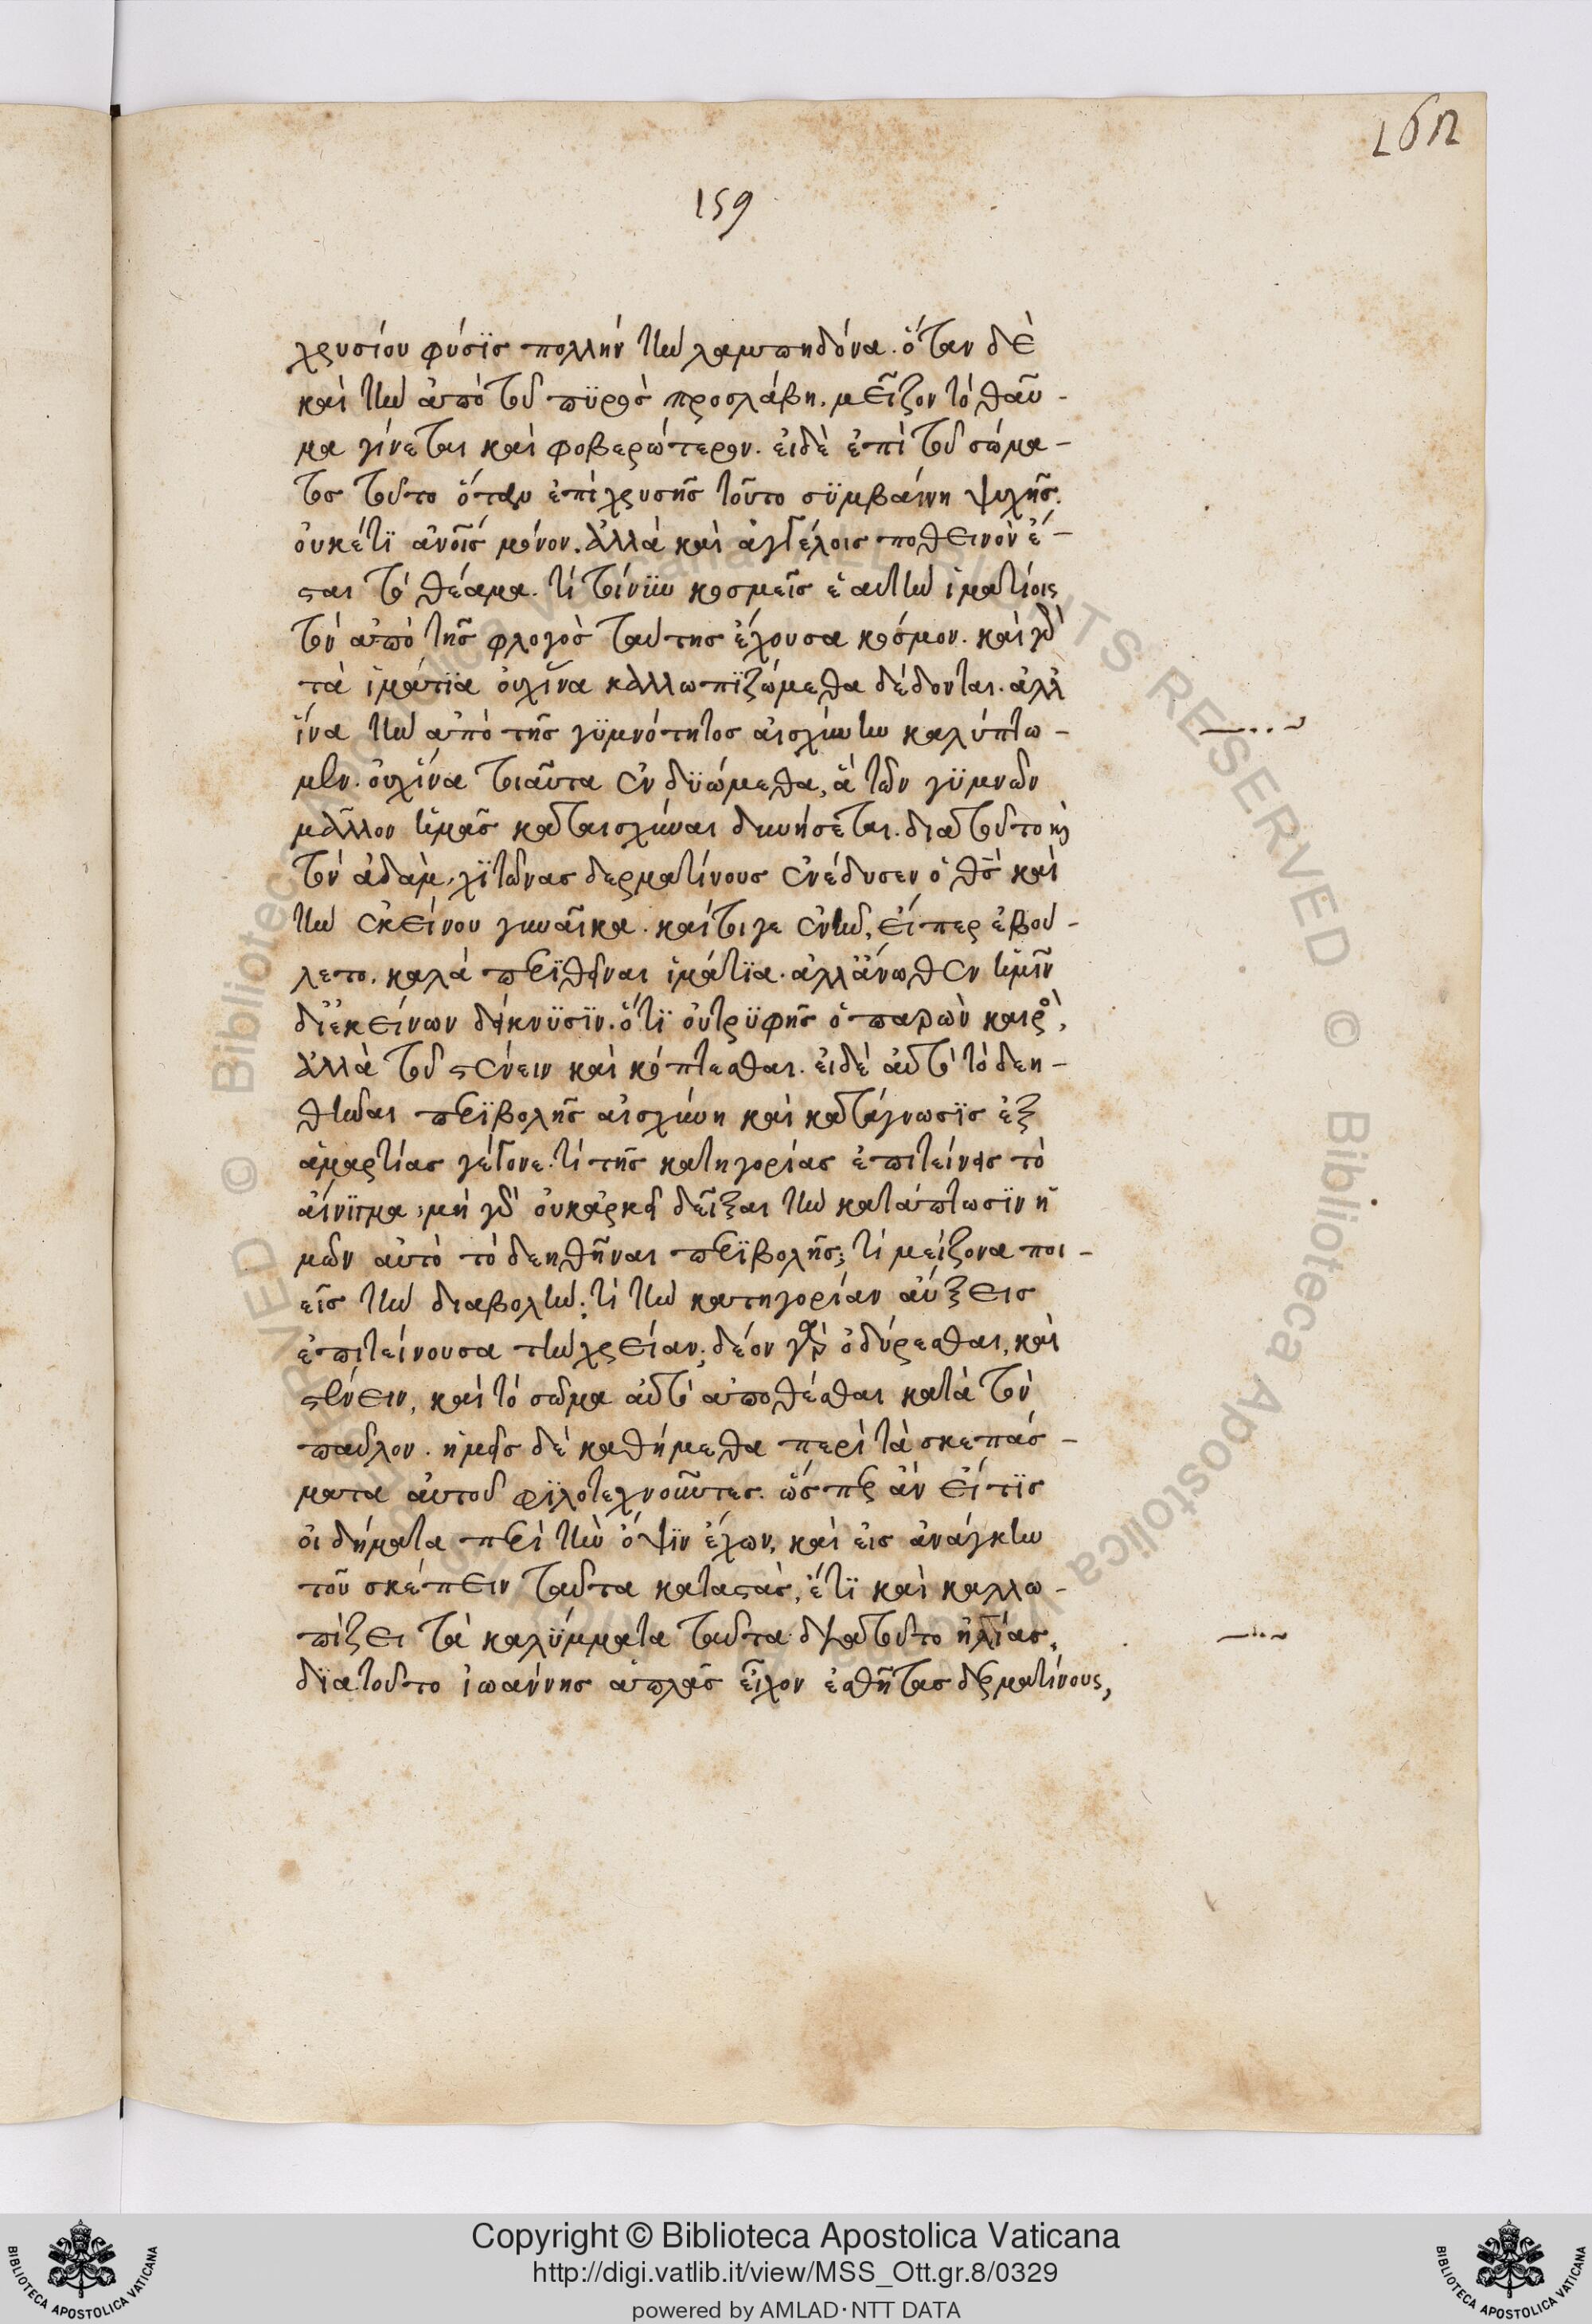 159
χρυσίου φύσϊς πολλήν τὴν λαμπηδόνα. ὅταν δὲ
καὶ τὴν ἀπὸ τοῦ πϋρὸς προσλάβη. μεῖζον τὸ θαῦ-
μα γίνεται καὶ φοβερώτερον. εἰδὲ ἐπὶ τοῦ σώμα-
τος τοῦτο ὅταν ἐπὶ χρυσῆς τοῦτο σϋμβαίνη ψυχῆς.
οὐκέτϊ ἀνοῖς μόνον. ἀλλὰ καὶ ἀγγέλοις ποθεινὸν ἔ-
σται τὸ θέαμα. τί τοίνϋν κοσμεῖς ἑαυτὴν ἱματίοις
τὸν ἀπὸ τῆς φλογὸς ταύτης ἔχουσα κόσμον. καὶ γὰρ
τὰ ἱμάτϊα οὐχἵνα καλλωπϊζώμεθα δέδονται. ἀλλ
ἵνα τὴν ἀπὸ τῆς γϋμνότητος αἰσχύνην καλύπτω-
μεν. οὐχἵνα τοιαῦτα ἐνδϋώμεθα, ἃ τῶν γϋμνῶν
μᾶλλον ἡμᾶς καταισχύναι δυνήσεται. διατοῦτο καὶ
τὸν ἀδὰμ, χϊτῶνας δερματίνους ἐνέδυσεν ὁ θς καὶ
τὴν ἐκείνου γυναῖκα. καίτοιγε ἐνῆν, εἴπερ ἐβού-
λετο. καλὰ περϊθεῖναι ἱμάτϊα. ἀλλἄνωθεν ἡμῖν
διἐκείνων δείκνϋσϊν. ὅτϊ οὐτρϋφῆς ὁ παρὼν καιρὸς,
ἀλλὰ τοῦ στένειν καὶ κόπτεσθαι. εἰδὲ αὐτὸ τὸ δεη-
θῆναι περϊβολῆς αἰσχύνη καὶ κατάγνωσϊς ἐξ
ἁμαρτίας γέγονε. τί τῆς κατηγορίας ἐπιτείνεις τὸ
αἴνιγμα; μὴ γὰρ οὐκἀρκεῖ δεῖξαι τὴν κατάπτωσϊν ἡ
μῶν αὐτὸ τὸ δεηθῆναι περϊβολῆς; τί μείζονα ποι-
εῖς τὴν διαβολήν; τί τὴν κατηγορίαν αὔξεις
ἐπιτείνουσα τὴν χρείαν; δέον γὰρ ὀδύρεσθαι, καὶ
στένειν, καὶ τὸ σῶμα αὐτὸ ἀποθέσθαι κατὰ τὸν
παῦλον. ἡμεῖς δὲ καθήμεθα περὶ τὰ σκεπάσ-
ματα αὐτοῦ φϊλοτεχνοῦντες. ὥσπερ ἂν εἴ τϊς
οἰδήματα περὶ τὴν ὄψϊν ἔχων, καὶ εἰς ἀνάγκην
τοῦ σκέπειν ταῦτα καταστὰς, ἔτϊ καὶ καλλω-
πίζει τὰ καλϋμματα ταῦτα. διατοῦτο ἠλίας,
δϊατοῦτο ἰωάννης ἁπλᾶς εἶχον ἐσθῆτας δερματίνους,
© Biblioteca Apostolica Vaticana ALL RIGHTS RESERVED
Copyright © Biblioteca Apostolica Vaticana
http://digi.vatlib.it/view/MSS_Ott.gr.8/0329
powered by AMLAD·NTT DATA
BIBLIOTECA APOSTOLICA VATICANA
BIBLIOTECA APOSTOLICA VATICANA